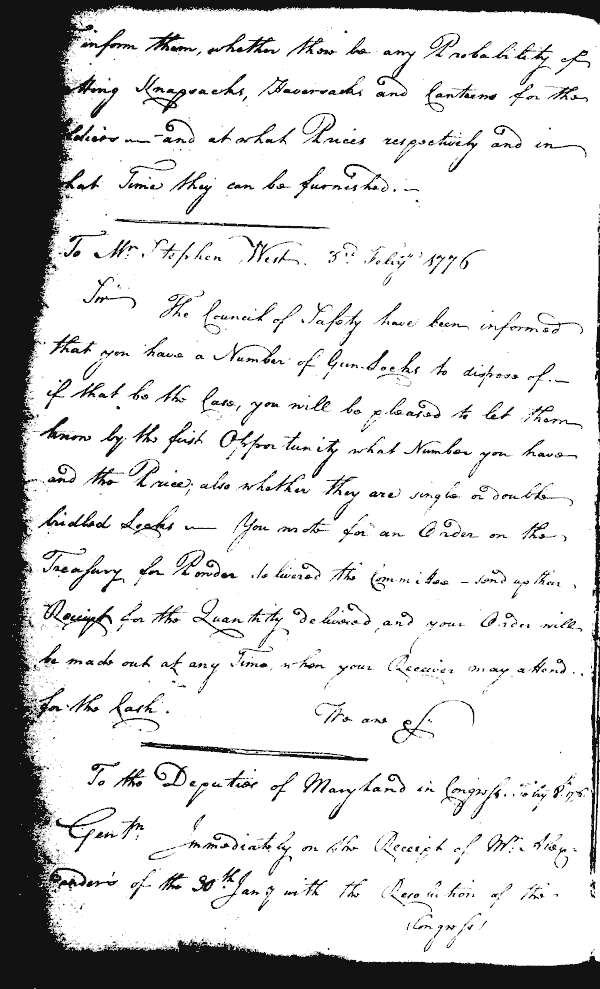 inform them, whether there be any Probability of
tting Knapsacks, Haversacks and Canteens for the
ldiers — and at what Prices respectively and in
hat Time they can be furnished. —
To Mr. Stephen West. 3rd. Feby. 1776
Sir
The Council of Safety have been informed
that you have a Number of Gun-Locks to dispose of. —
if that be the Case, you will be pleased to let them
know by the first Opportunity what Number you have
and the Price; also whether they are single or double
bridled Locks — You wrote for an Order on the
Treasury for Powder delivered the Committee — send up their
Receipt for the Quantity delivered and your Order will
be made out at any Time, when your Receiver may attend
for the Cash.
We are &c.
To the Deputies of Maryland in Congress. Feby 8th. 1776.
Gentn. Immediately on the Receipt of Mr. Alex-
ander's of the 30th Jany with the Resolution of the
Congress